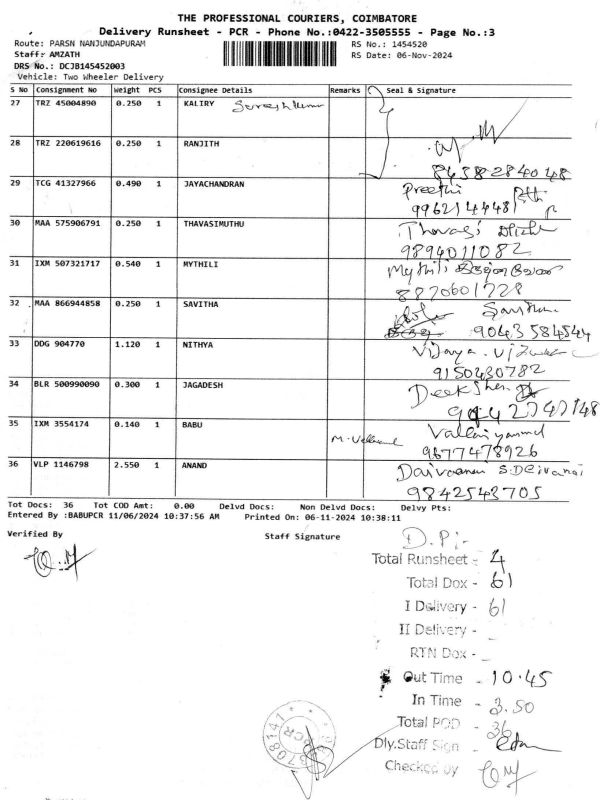 THE PROFESSIONAL COURIERS, COIMBATORE
Delivery Runsheet - PCR - Phone No.:0422-3505555 - Page No.:3
Route: PARSN NANJUNDAPURAM RS No.: 1454520
Staff: AMZATH RS Date: 06-Nov-2024
DRS No.: DCJB145452003
Vehicle: Two Wheeler Delivery
S No Consignment No Weight PCS Consignee Details Remarks Seal & Signature
27 TRZ 45004890 0.250 1 KALIRY Sureshkumar
28 TRZ 220619616 0.250 1 RANJITH
8438284048
29 TCG 41327966 0.490 1 JAYACHANDRAN Preethi
9962144481
30 MAA 575906791 0.250 1 THAVASIMUTHU Thavasi
9894011082
31 IXM 507321717 0.540 1 MYTHILI Mythili
8870601728
32 MAA 866944858 0.250 1 SAVITHA Savitha
9043584544
33 DDG 904770 1.120 1 NITHYA Vijaya
9150430782
34 BLR 500990090 0.300 1 JAGADESH
35 IXM 3554174 0.140 1 BABU Valliyammal
9677478926
36 VLP 1146798 2.550 1 ANAND Daivaanai S.Deivanai
9842543705
Tot Docs: 36 Tot COD Amt: 0.00 Delvd Docs: Non Delvd Docs: Delvy Pts:
Entered By :BABUPCR 11/06/2024 10:37:56 AM Printed On: 06-11-2024 10:38:11
Verified By Staff Signature D.P:-
Total Runsheet - 4
Total Dox - 61
I Delivery - 61
II Delivery -
RTN Dox -
Out Time - 10.45
In Time - 3.50
Total POD - 36
Dly.Staff Sign -
Checked by
PCR